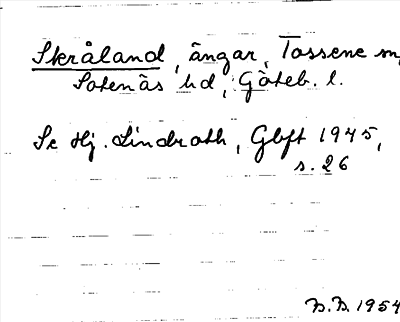 Skråland, ängar, Tossene sn,
Sotenäs hd, Göteb. l.
Se Hj. Lindroth, Gbft 1945,
s. 26
B.B. 1954